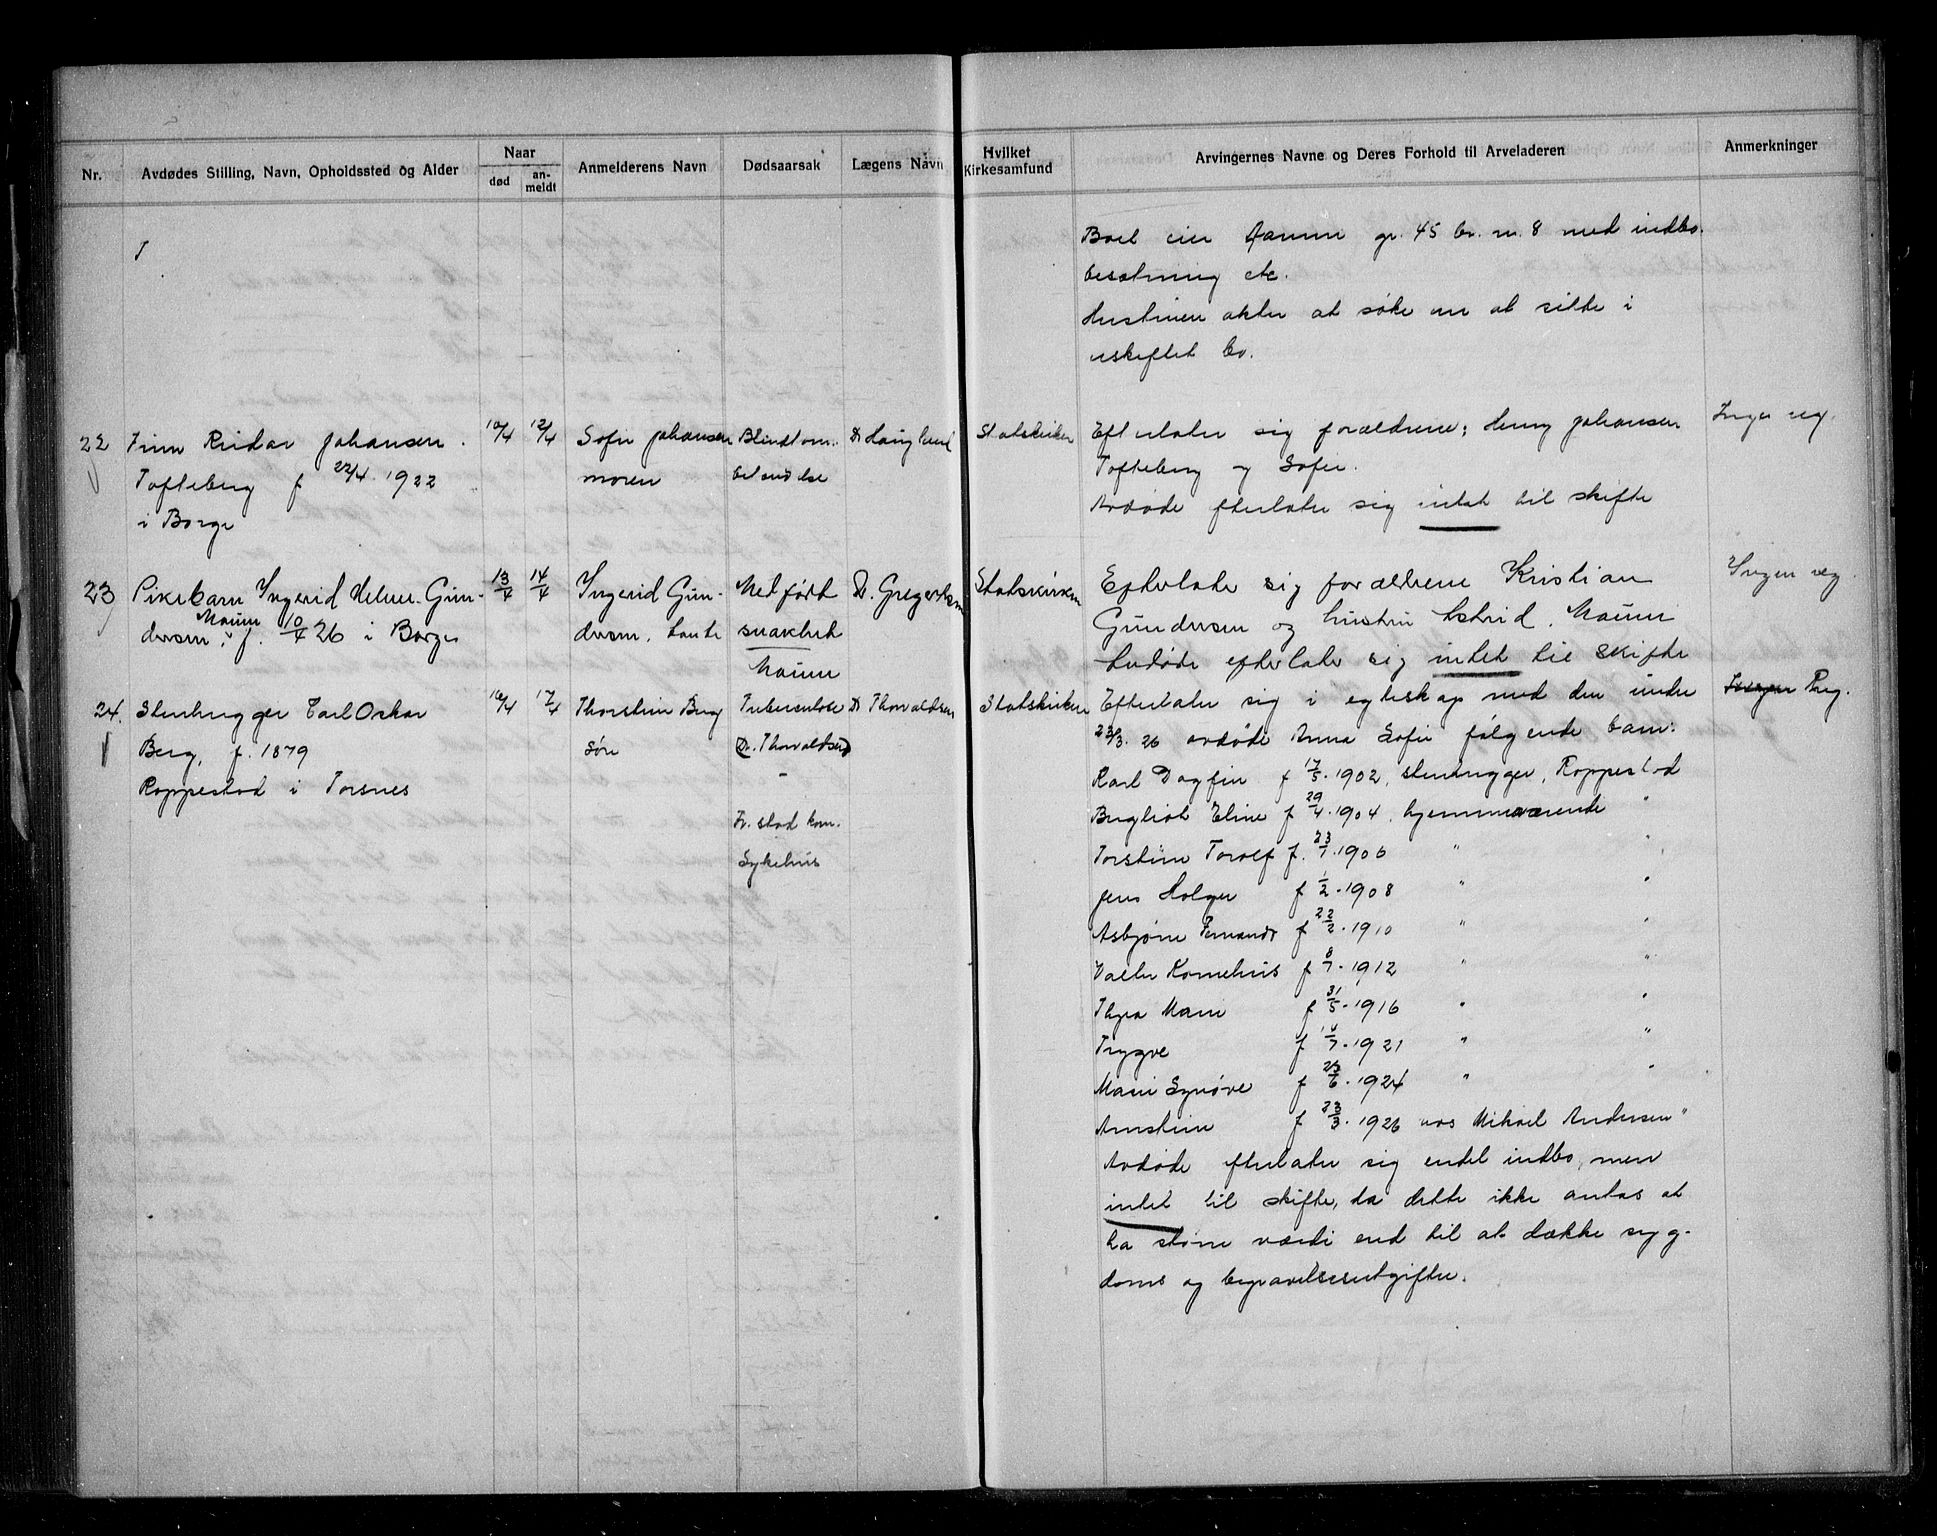 Nr.
Avdødes Stilling, Navn, Opholdssted og Alder
Naar
død
an-
meldt
Anmelderens Navn
Dødsaarsak
Lægens Navn
Hvilket
Kirkesamfund
Arvingernes Navne og Deres Forhold til Arveladeren
Anmerkninger
Boet eier Hamne gr. 45 br. nr. 8 med indbo.
besætning etc.
Hustruen akter at søke om at sitte i
uskiftet bo.
22
Finn Reidar Johansen.
Tofteberg f 22/4. 1922
i Borge
10/4
12/4
Sofie Johansen
moren
Blindtarm-
betændelse
Dr Hauglund
Statskirken
Efterlater sig forældrene: Henry Johansen
Tofteberg og Sofie.
Avdøde efterlater sig intet til skifte
Ingen reg.
23
Pikebarn Ingerid Helene Gun-
dersen, Moum f. 10/4 26 i Borge
13/4
14/4
Ingerid Gun-
dersen, tante
Medfødt
svakhet
Moum
Dr. Gregertsen
Statskirken
Efterlater sig forældrene Kristian
Gundersen og hustru Astrid, Moum
Avdøde efterlater sig intet til skifte
Ingen reg.
24.
Stenhugger Carl Oskar
Berg, f. 1879
Roppestad i Torsnes
16/4
17/4
Thorstein Berg
søn
Tuberculose
Dr. Thorvaldsen
Fr. stad kom.
Sykehus
Dr Thorvaldsen
Statskirken
Efterlater sig i egteskap med den under
23/3. 26 avdøde Anna Sofie følgende barn:
Ingen Reg.
Karl Dagfin f 17/5. 1902, stenhugger, Roppestad
Bergliot Eline f 29/4. 1904, hjemmeværende "
Torstein Torolf f. 23/7. 1906 " "
Jens Holger f 1/2. 1908 " "
Asbjørn Fernando f 22/2. 1910 " "
Valter Kornelius f 8/7. 1912 " "
Thyra Marie f 31/5. 1916 " "
Trygve f 10/7. 1921 " "
Marie Synøve f 23/6. 1924 " "
Arnstein f 23/3. 1926 hos Mikael Andersen "
Avdøde efterlater sig endel indbo, men
intet til skifte, da dette ikke antas at
ha større værdi end til at dække syg-
doms og begravelsesutgifter.